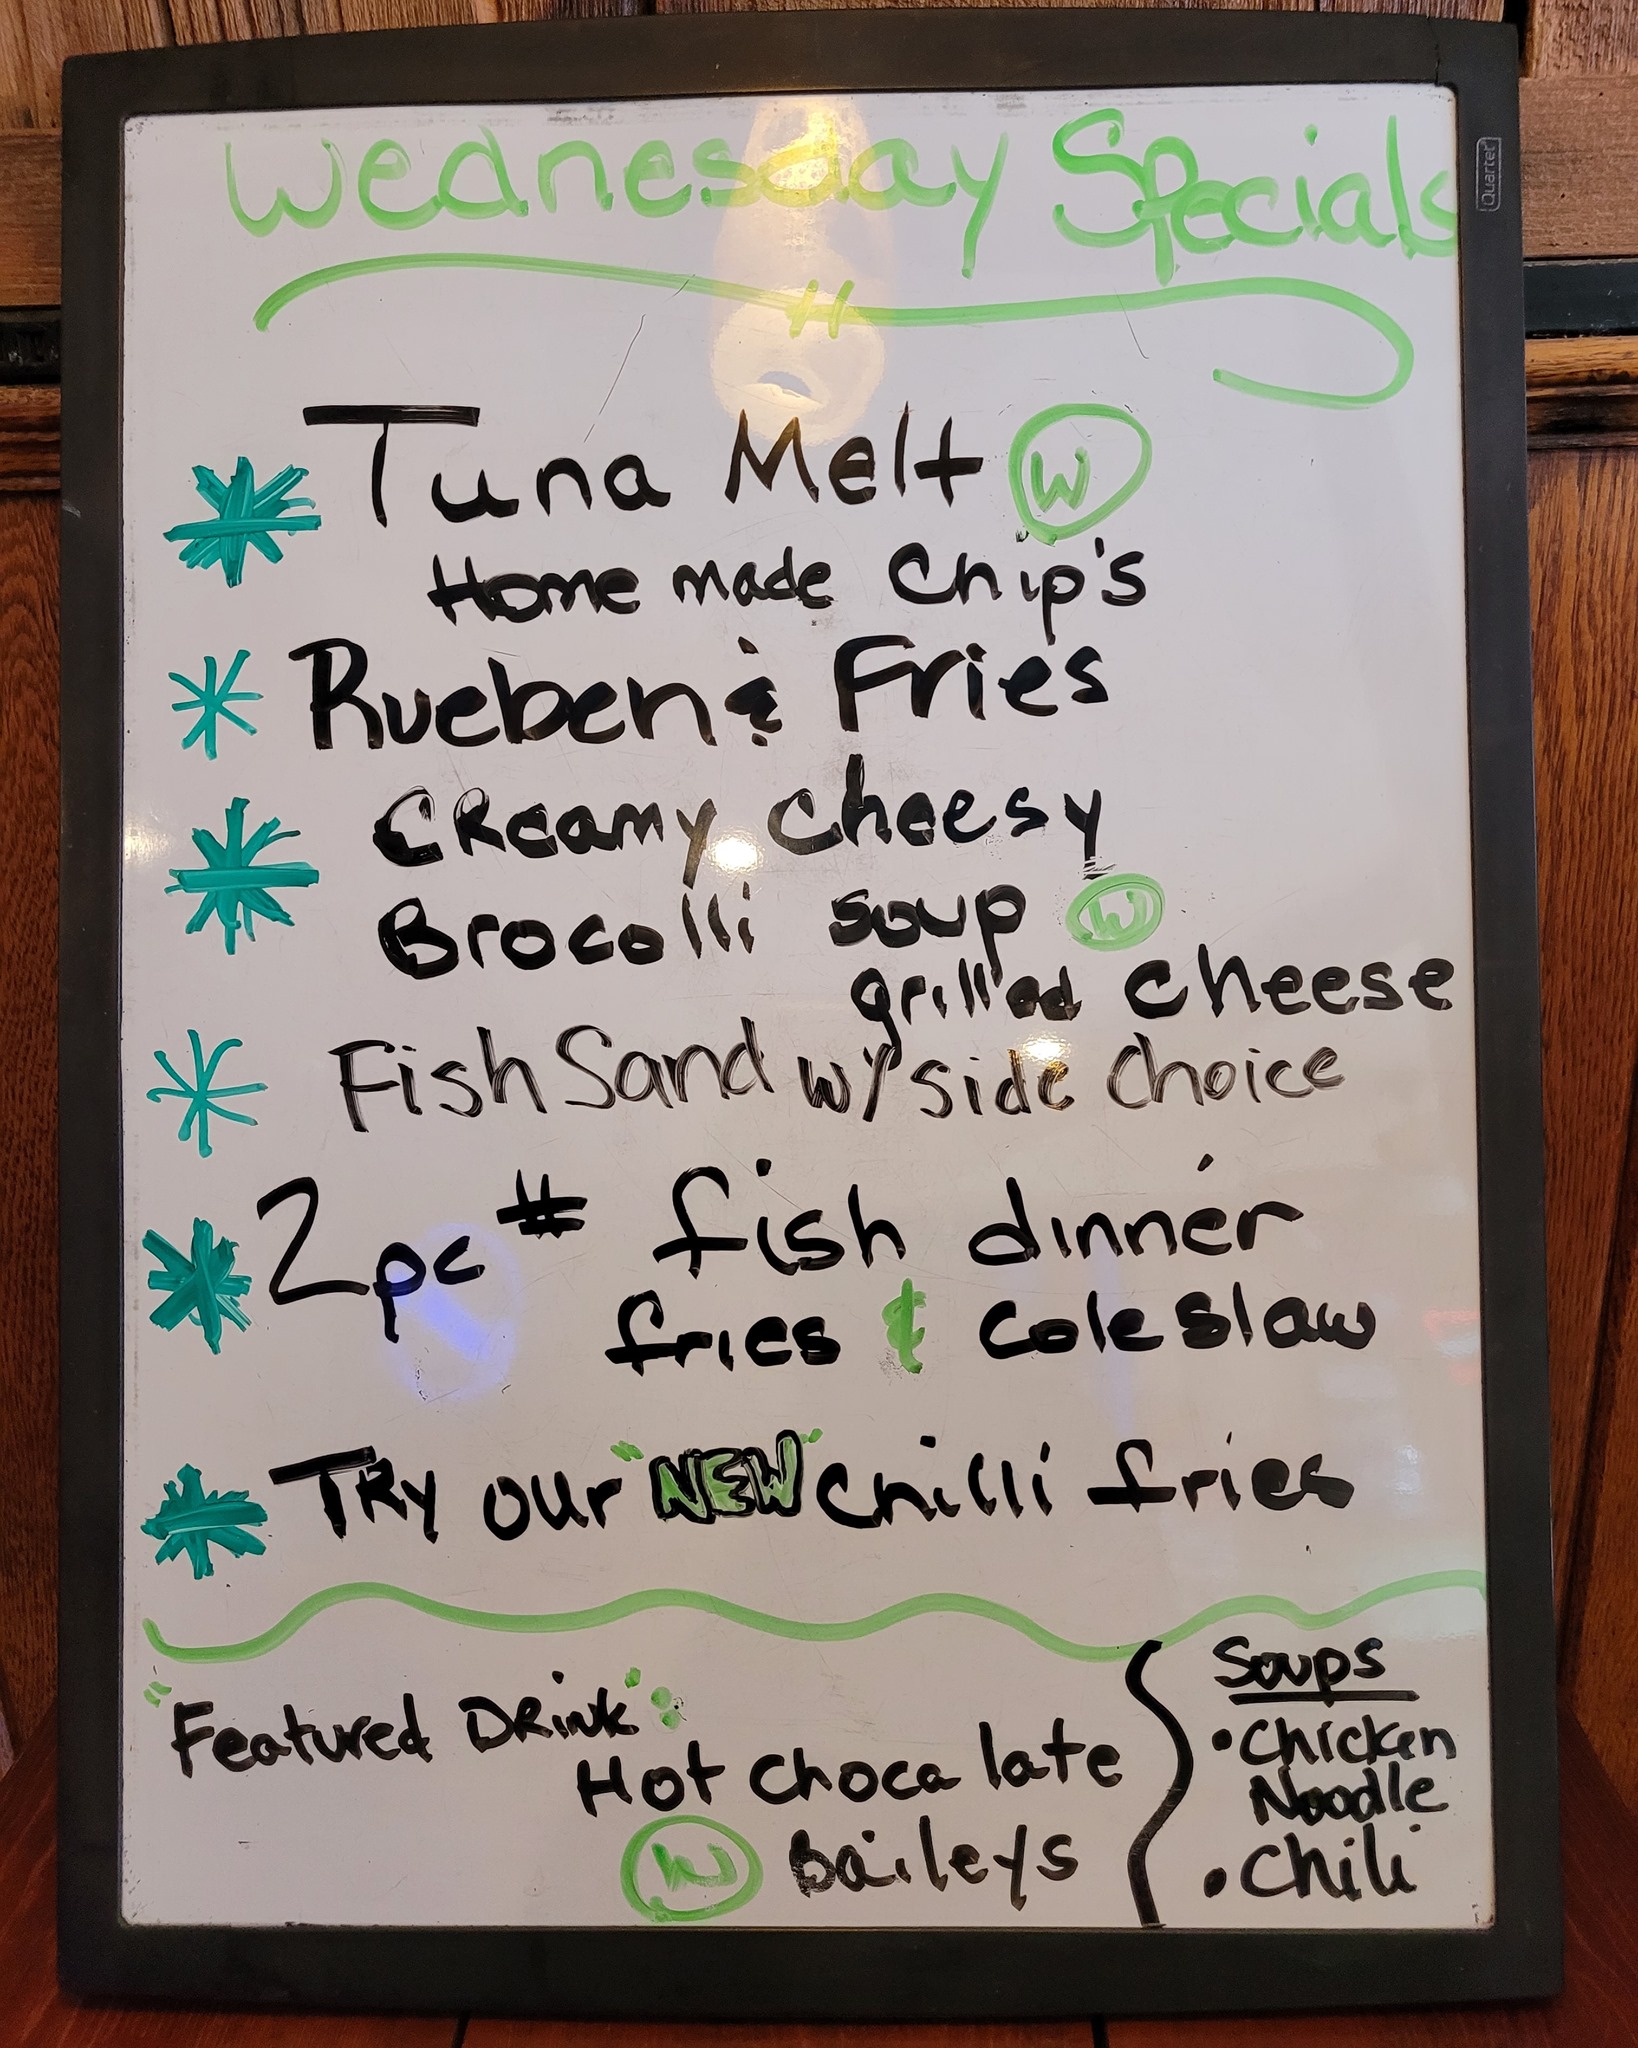 Wednesday Specials
Quartet
Tuna Melt W
Home made Chip's
Rueben & Fries
Creamy Cheesy
Brocolli soup W
grilled cheese
Fish Sand w/ side Choice
2pc # fish dinner
fries & coleslaw
Try our "NEW" chilli fries
"Featured Drink":
Hot chocalate
W baileys
Soups
• Chicken
Noodle
• Chili